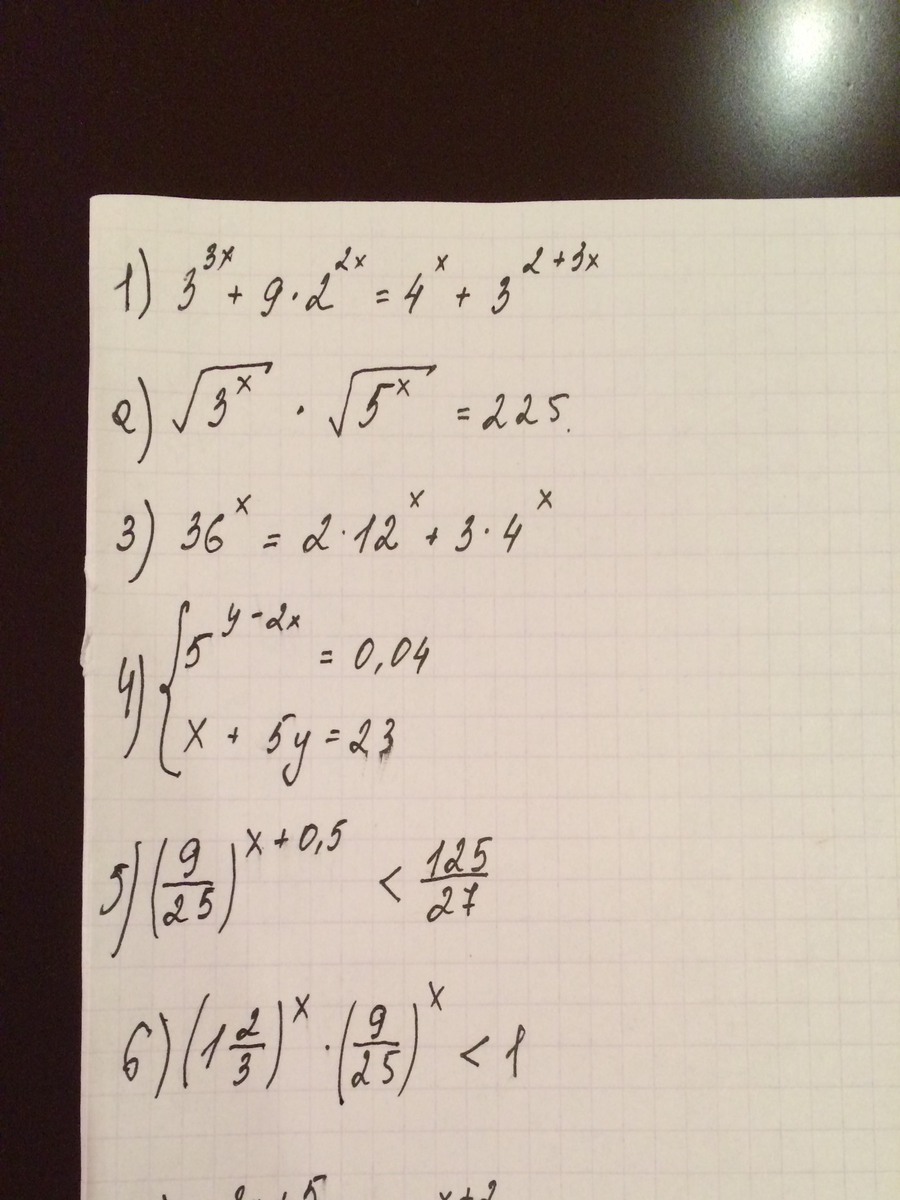 1) 3^{3x} + 9 · 2^{2x} = 4^x + 3^{2+3x}
2) √(3^x) · √(5^x) = 225.
3) 36^x = 2 · 12^x + 3 · 4^x
4) { 5^{y-2x} = 0,04
x + 5y = 23
5) (9/25)^{x+0,5} < 125/27
6) (1 2/3)^x · (9/25)^x < 1